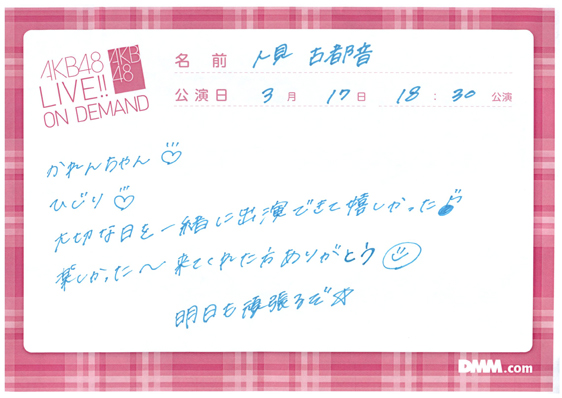 AKB48
LIVE!!
ON DEMAND
AKB
48
名前 人見 古都音
公演日 3月 17日 18:30 公演
かれんちゃん♡
ひじり♡
大切な日を一緒に出演できて嬉しかった♪
楽しかった〜 来てくれた方ありがとう
明日も頑張るぞ☆
DMM.com